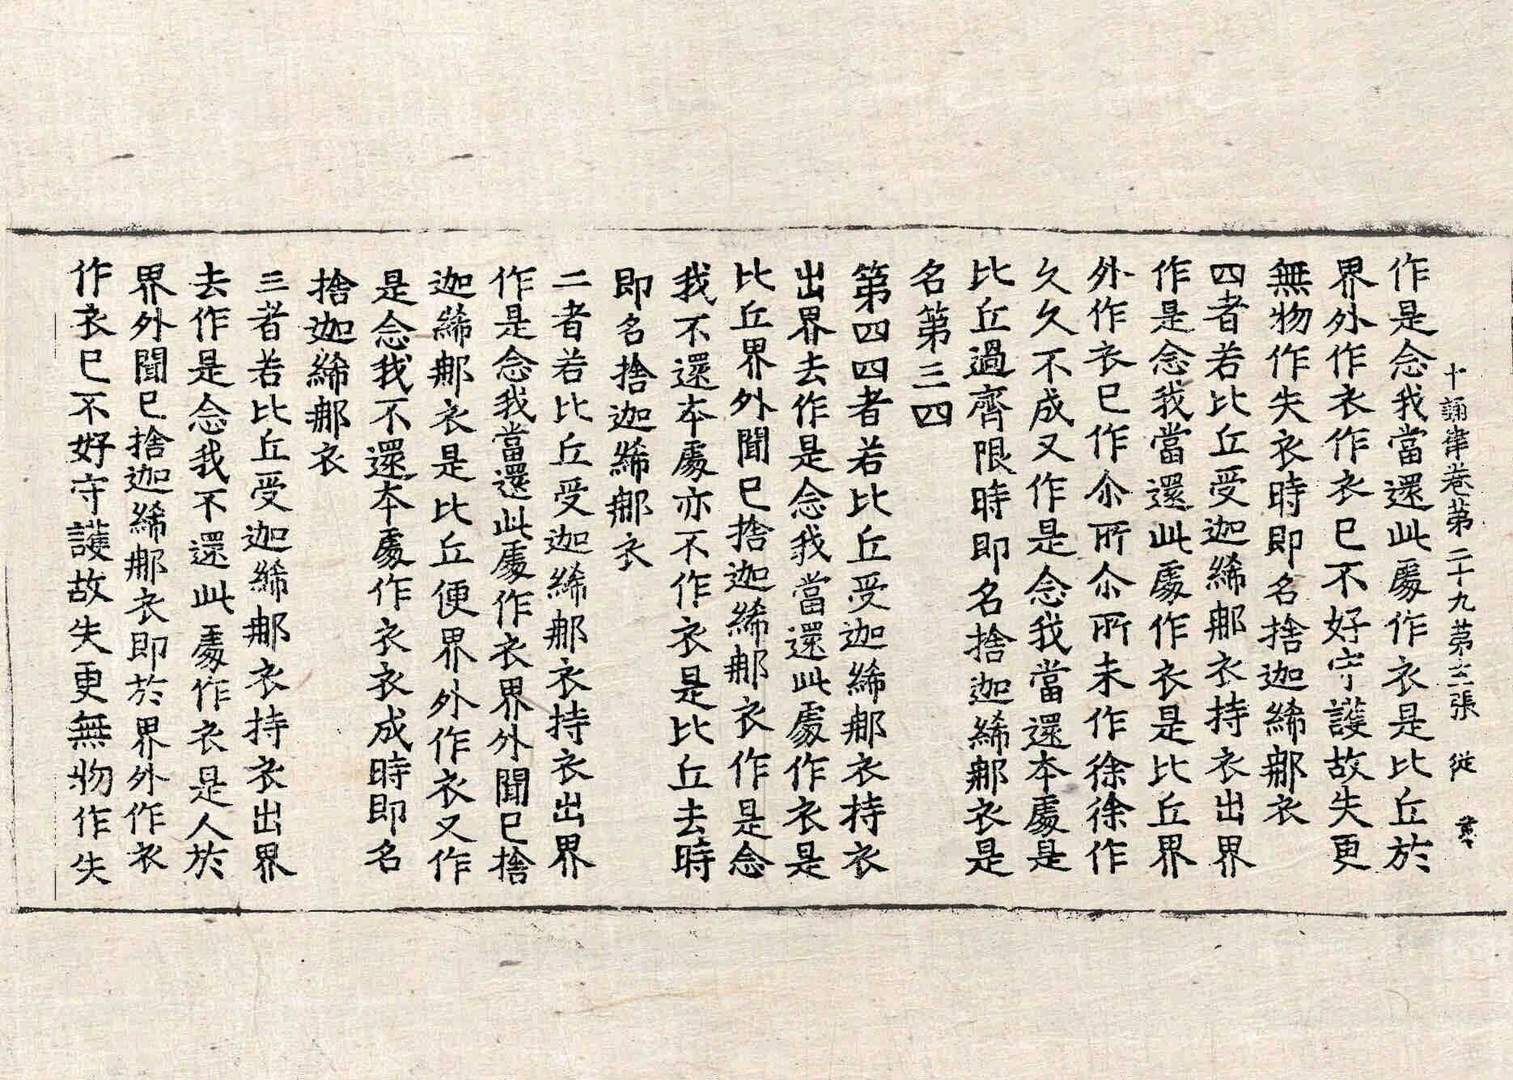 十誦律卷第二十九第 張 從
作是念我當還此處作衣是比丘於
界外作衣作衣已不好守護故失更
無物作失衣時即名捨迦絺郍衣
四者若比丘受迦絺郍衣持衣出界
作是念我當還此處作衣是比丘界
外作衣已作尒所尒所未作徐徐作
久久不成又作是念我當還本處是
比丘過齊限時即名捨迦絺郍衣是
名第三四
第四四者若比丘受迦絺郍衣持衣
出界去作是念我當還此處作衣是
比丘界外聞已捨迦絺郍衣作是念
我不還本處亦不作衣是比丘去時
即名捨迦絺郍衣
二者若比丘受迦絺郍衣持衣出界
作是念我當還此處作衣界外聞已捨
迦絺郍衣是比丘便界外作衣又作
是念我不還本處作衣衣成時即名
捨迦絺郍衣
三者若比丘受迦絺郍衣持衣出界
去作是念我不還此處作衣是人於
界外聞已捨迦絺郍衣即於界外作衣
作衣已不好守護故失更無物作失